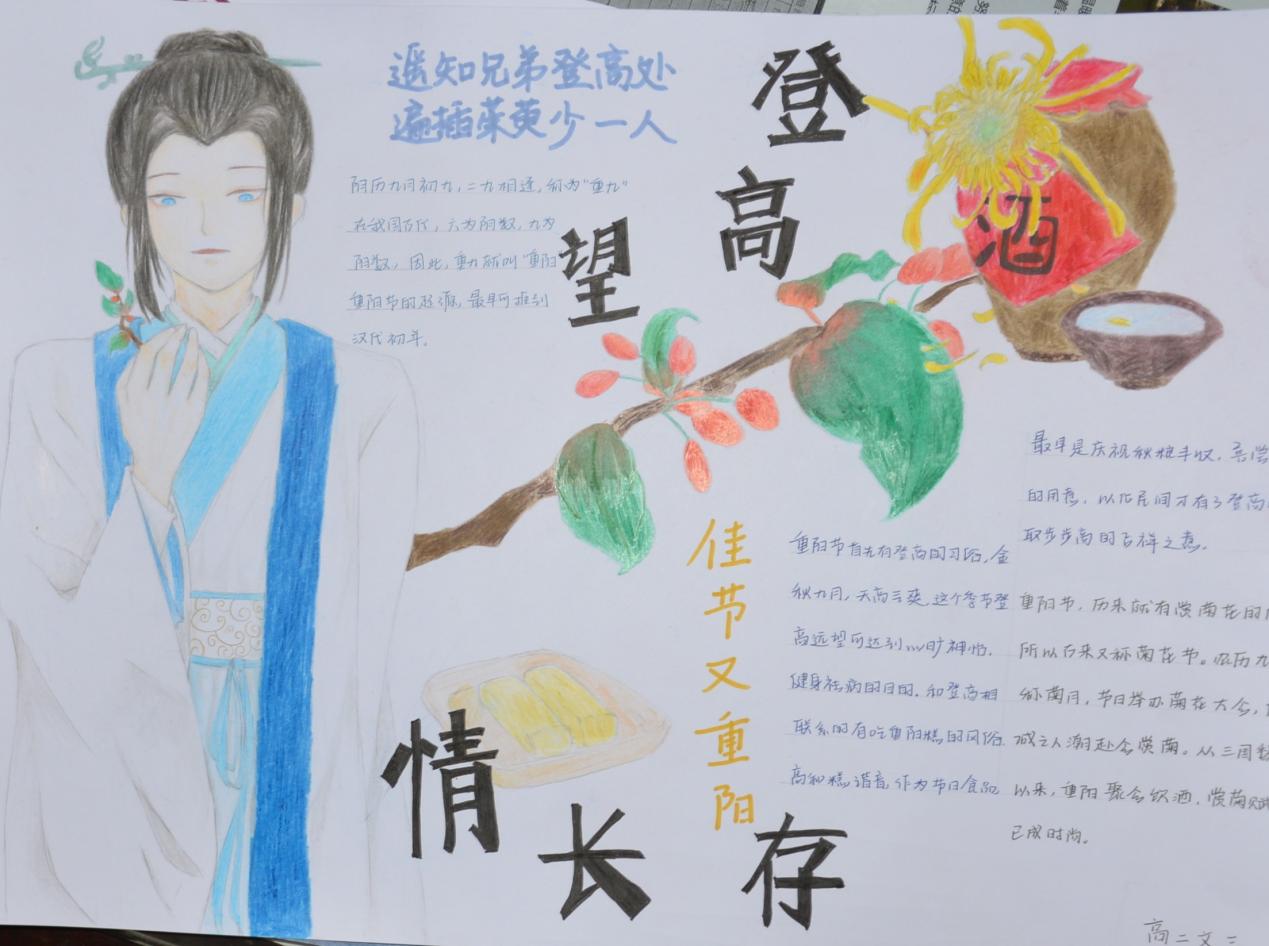 遥知兄弟登高处
遍插茱萸少一人
登高
望
酒
阴历九月初九，二九相连，称为"重九"
在我国古代，六为阴数，九为
阳数，因此，重九就叫"重阳
重阳节的起源，最早可推到
汉代初年。
佳节又重阳
情长存
重阳节首先有登高的习俗，金
秋九月，天高气爽，这个季节登
高远望可达到心旷神怡、
健身祛病的目的。和登高相
联系的有吃重阳糕的风俗。
高和糕谐音，作为节日食品
最早是庆祝秋粮丰收、
的用意，以化民间才有了登高
取步步高的吉祥之意。
重阳节，历来就有赏菊花的
所以古来又称菊花节。农历九
称菊月，节日举办菊花大会，
城之人潮赴会赏菊。从三国
以来，重阳聚会饮酒、赏菊赋
已成时尚。
高二文二